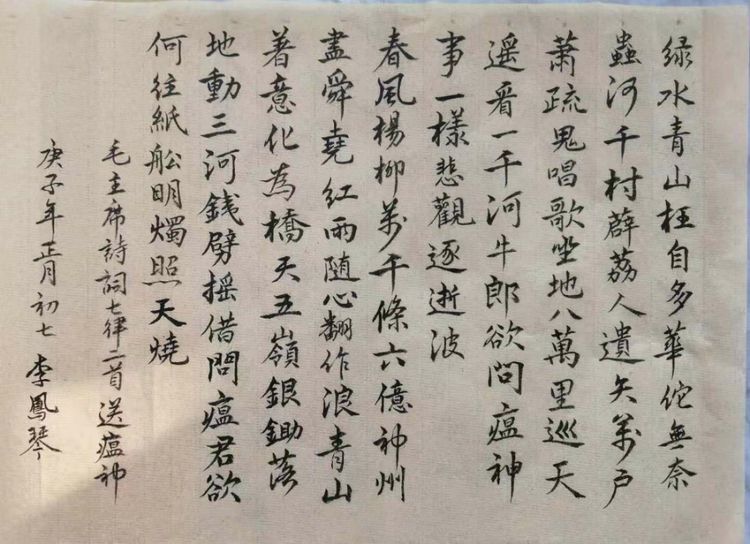 绿水青山枉自多華佗無奈
蟲河千村薜荔人遺矢萬户
蕭疏鬼唱歌坐地八萬里巡天
遥看一千河牛郎欲問瘟神
事一樣悲觀逐逝波
春風楊柳萬千條六億神州
盡舜堯紅雨随心翻作浪青山
著意化為橋天五嶺銀鋤落
地動三河銭劈摇借問瘟君欲
何往紙船明燭照天燒
毛主席詩詞七律二首送瘟神
庚子年正月初七 李鳳琴